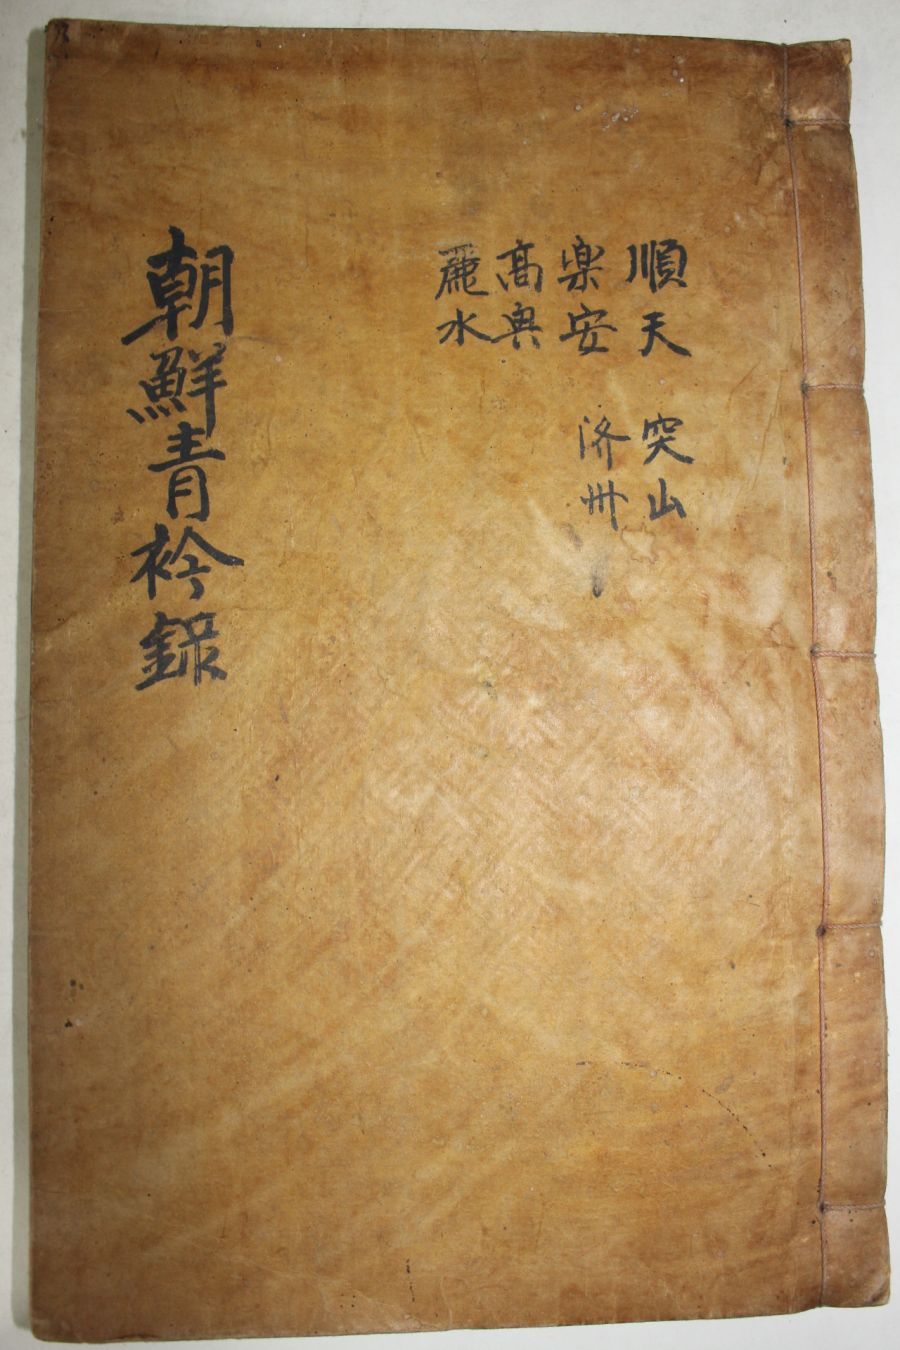 順天 突山
楽安 済州
髙興
麗水
朝鮮青衿録